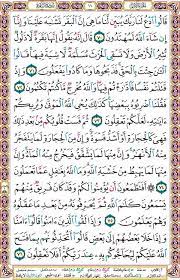 قَالُوا ادْعُ لَنَا رَبَّكَ يُبَيِّنْ لَنَا مَا هِيَ إِنَّ الْبَقَرَ تَشَابَهَ عَلَيْنَا وَإِنَّا
إِنْ شَاءَ اللَّهُ لَمُهْتَدُونَ ٧٠ قَالَ إِنَّهُ يَقُولُ إِنَّهَا بَقَرَةٌ لَا ذَلُولٌ
تُثِيرُ الْأَرْضَ وَلَا تَسْقِي الْحَرْثَ مُسَلَّمَةٌ لَا شِيَةَ فِيهَا قَالُوا
الْآنَ جِئْتَ بِالْحَقِّ فَذَبَحُوهَا وَمَا كَادُوا يَفْعَلُونَ ٧١
وَإِذْ قَتَلْتُمْ نَفْسًا فَادَّارَأْتُمْ فِيهَا وَاللَّهُ مُخْرِجٌ مَا كُنْتُمْ تَكْتُمُونَ ٧٢
فَقُلْنَا اضْرِبُوهُ بِبَعْضِهَا كَذَلِكَ يُحْيِي اللَّهُ الْمَوْتَى وَيُرِيكُمْ
آيَاتِهِ لَعَلَّكُمْ تَعْقِلُونَ ٧٣ ثُمَّ قَسَتْ قُلُوبُكُمْ مِنْ بَعْدِ ذَلِكَ
فَهِيَ كَالْحِجَارَةِ أَوْ أَشَدُّ قَسْوَةً وَإِنَّ مِنَ الْحِجَارَةِ لَمَا يَتَفَجَّرُ
مِنْهُ الْأَنْهَارُ وَإِنَّ مِنْهَا لَمَا يَشَّقَّقُ فَيَخْرُجُ مِنْهُ الْمَاءُ
وَإِنَّ مِنْهَا لَمَا يَهْبِطُ مِنْ خَشْيَةِ اللَّهِ وَمَا اللَّهُ بِغَافِلٍ عَمَّا تَعْمَلُونَ ٧٤
أَفَتَطْمَعُونَ أَنْ يُؤْمِنُوا لَكُمْ وَقَدْ كَانَ فَرِيقٌ مِنْهُمْ
يَسْمَعُونَ كَلَامَ اللَّهِ ثُمَّ يُحَرِّفُونَهُ مِنْ بَعْدِ مَا عَقَلُوهُ
وَهُمْ يَعْلَمُونَ ٧٥ وَإِذَا لَقُوا الَّذِينَ آمَنُوا قَالُوا آمَنَّا
وَإِذَا خَلَا بَعْضُهُمْ إِلَى بَعْضٍ قَالُوا أَتُحَدِّثُونَهُمْ بِمَا فَتَحَ
اللَّهُ عَلَيْكُمْ لِيُحَاجُّوكُمْ بِهِ عِنْدَ رَبِّكُمْ أَفَلَا تَعْقِلُونَ ٧٦